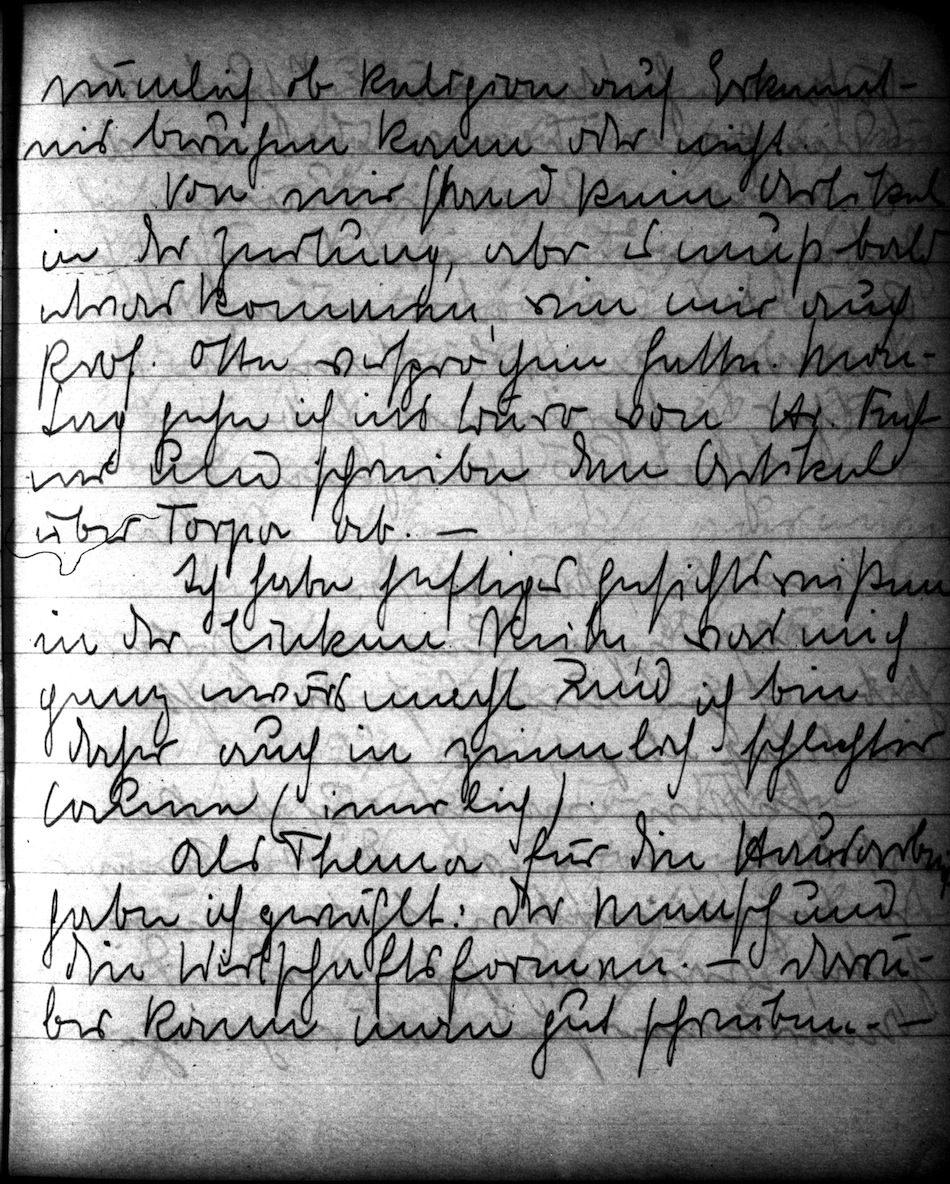 nämlich ob Religion auf Erkennt-
nis beruhen kann oder nicht.
Von mir stand kein Artikel
in der Zeitung, aber es muß bald
etwas kommen, wie mir auch
Prof. Otto versprochen hatte. Mon-
tag gehe ich ins Büro von
und schreibe den Artikel
über Torpa ab. —
Ich habe heftiges Gesichtsreißen
in der linken Seite was mich
ganz nervös macht und ich bin
daher auch in ziemlich schlechter
Laune (innerlich).
Als Thema für die Hausarbeit
habe ich gewählt: Der Mensch und
die Wirtschaftsformen. — Darü-
ber kann man gut schreiben. —